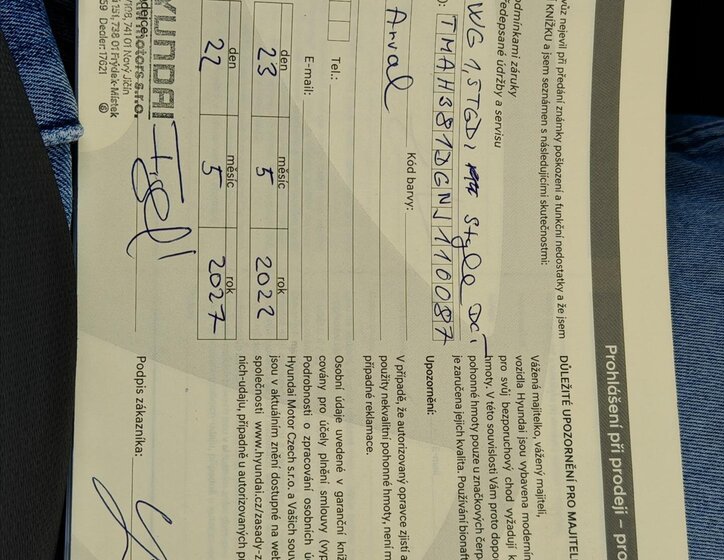 Prohlášení při prodeji – pro
vůz nejevil při předání známky poškození a funkční nedostatky a že jsem
KNÍŽKU a jsem seznámen s následujícími skutečnostmi:
odmínkami záruky
ředepsané údržby a servisu
WG 1,5TGDi Style DCT
TMAH381DGNJ110087
Kód barvy:
Arval
Tel.:
E-mail:
den měsíc rok
23 5 2022
den měsíc rok
22 5 2027
HYUNDAI
motors s.r.o.
1/108, 741 01 Nový Jičín
151, 738 01 Frýdek-Místek
59 Dealer: 17621
DŮLEŽITÉ UPOZORNĚNÍ PRO MAJITEL
Vážená majitelko, vážený majiteli,
vozidla Hyundai jsou vybavena moderním
pro svůj bezporuchový chod vyžadují k
hmoty. V této souvislosti Vám proto dopo
pohonné hmoty pouze u značkových čerp
je zaručena jejich kvalita. Používání bionaft
Upozornění:
V případě, že autorizovaný opravce zjistí a
použity nekvalitní pohonné hmoty, není m
případné reklamace.
Osobní údaje uvedené v garanční kníž
covány pro účely plnění smlouvy (vyp
Podrobnosti o zpracování osobních ú
Hyundai Motor Czech s.r.o. a Vašich sou
jsou v aktuálním znění dostupné na web
společnosti www.hyundai.cz/zasady-z
nich-udaju, případně u autorizovaných p
Podpis zákazníka: